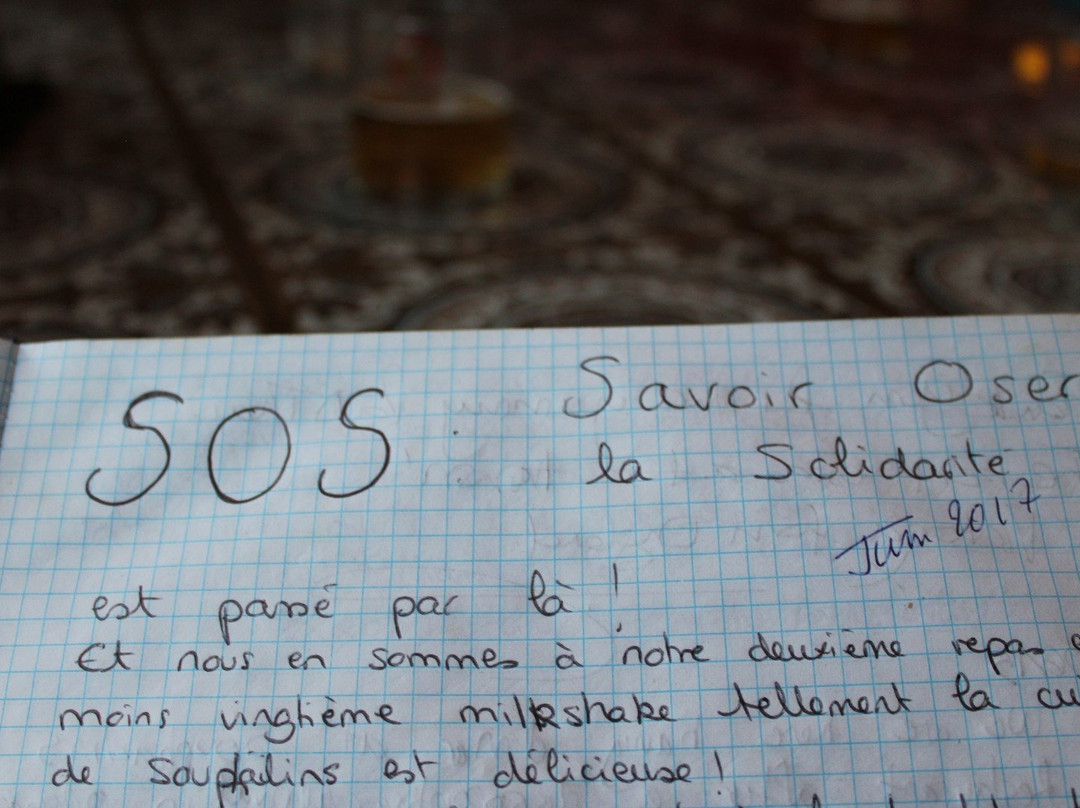 SOS. Savoir Oser
la Solidarité
Juin 2017
est passé par là !
Et nous en sommes à notre deuxième repas
moins vingtième milkshake tellement la
de est délicieuse !